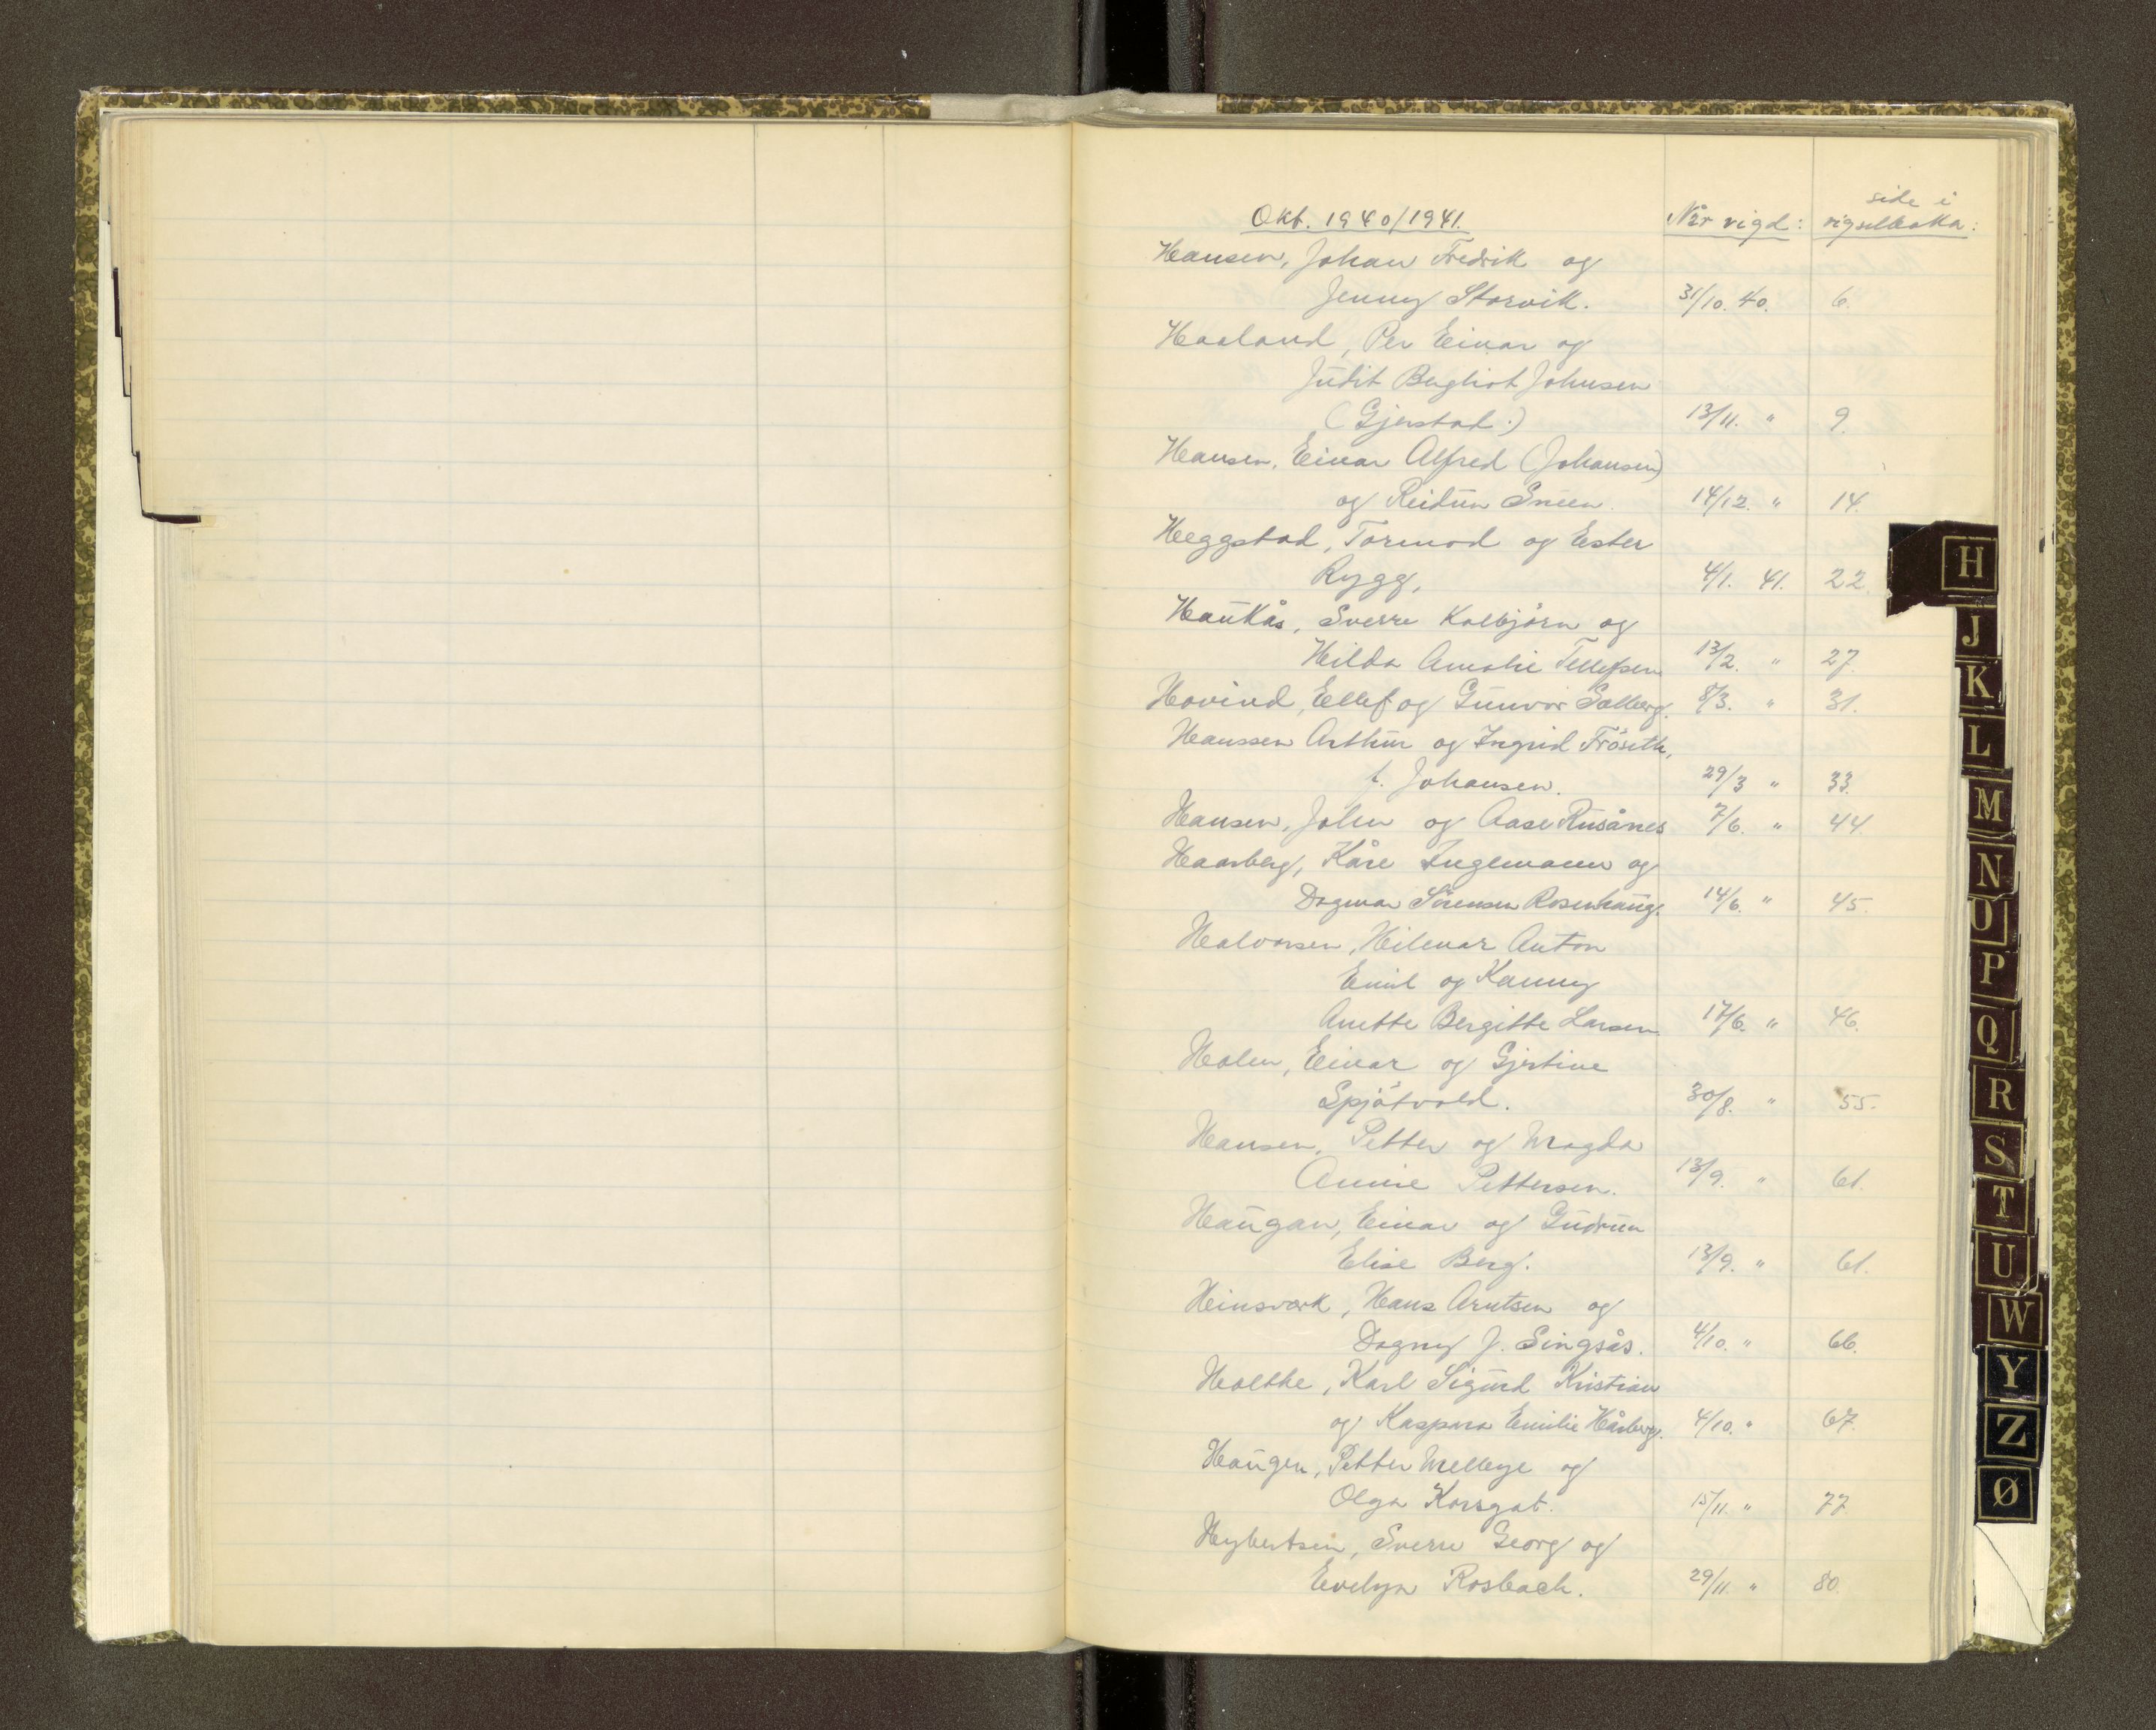 side i
Okt. 1940/1941. Når vigd: vigselboka:
Hansen, Johan Fredrik og
Jenny Storvik. 31/10. 40. 6.
Haaland, Per Einar og
Judit Bergliot Johnsen
(Gjerstad.) 13/11. " 9.
Hansen, Einar Alfred (Johansen)
og Reidun Sneen. 14/12. " 14.
Heggstad, Tormod og Ester
Rygg, 4/1. 41. 22.
Haukås, Sverre Kolbjörn og
Hilda Amalie Tellefsen 13/2. " 27.
Hovind, Ellef og Gunvor Solberg. 8/3. " 31.
Hanssen Arthur og Ingrid Fröseth,
f. Johansen. 29/3 " 33.
Hansen, John og Aase Rusånes 7/6. " 44.
Haarberg, Kåre Ingemann og
Dagmar Sörensen Rosenhaug. 14/6. " 45.
Halvorsen, Hilmar Anton
Emil og Kanny
Anette Bergitte Larsen 17/6. " 46.
Holen, Einar og Gjertine
Spjötvold. 30/8. " 55.
Hansen, Petter og Magda
Annie Pettersen. 13/9. " 61.
Haugan, Einar og Gudrun
Elise Berg. 13/9. " 61.
Heinsvark, Hans Arntsen og
Dagny J. Singsås. 4/10. " 66.
Holthe, Karl Sigurd Kristian
og Kaspara Emilie Hårberg. 4/10. " 67.
Haugen, Petter Mellbye og
Olga Korsgat. 15/11. " 77
Hybertsen, Sverre Georg og
Evelyn Rosbach. 29/11. " 80.
H
J
K
L
M
N
O
P
Q
R
S
T
U
W
Y
Z
Ø